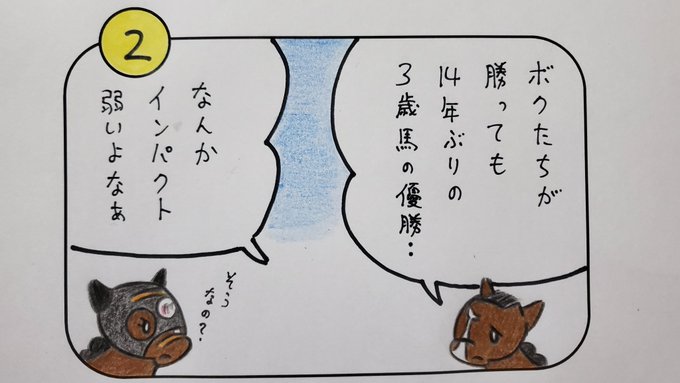 2
ボクたちが
勝っても
14年ぶりの
3歳馬の優勝‥
なんか
インパクト
弱いよなぁ
そう
なの?